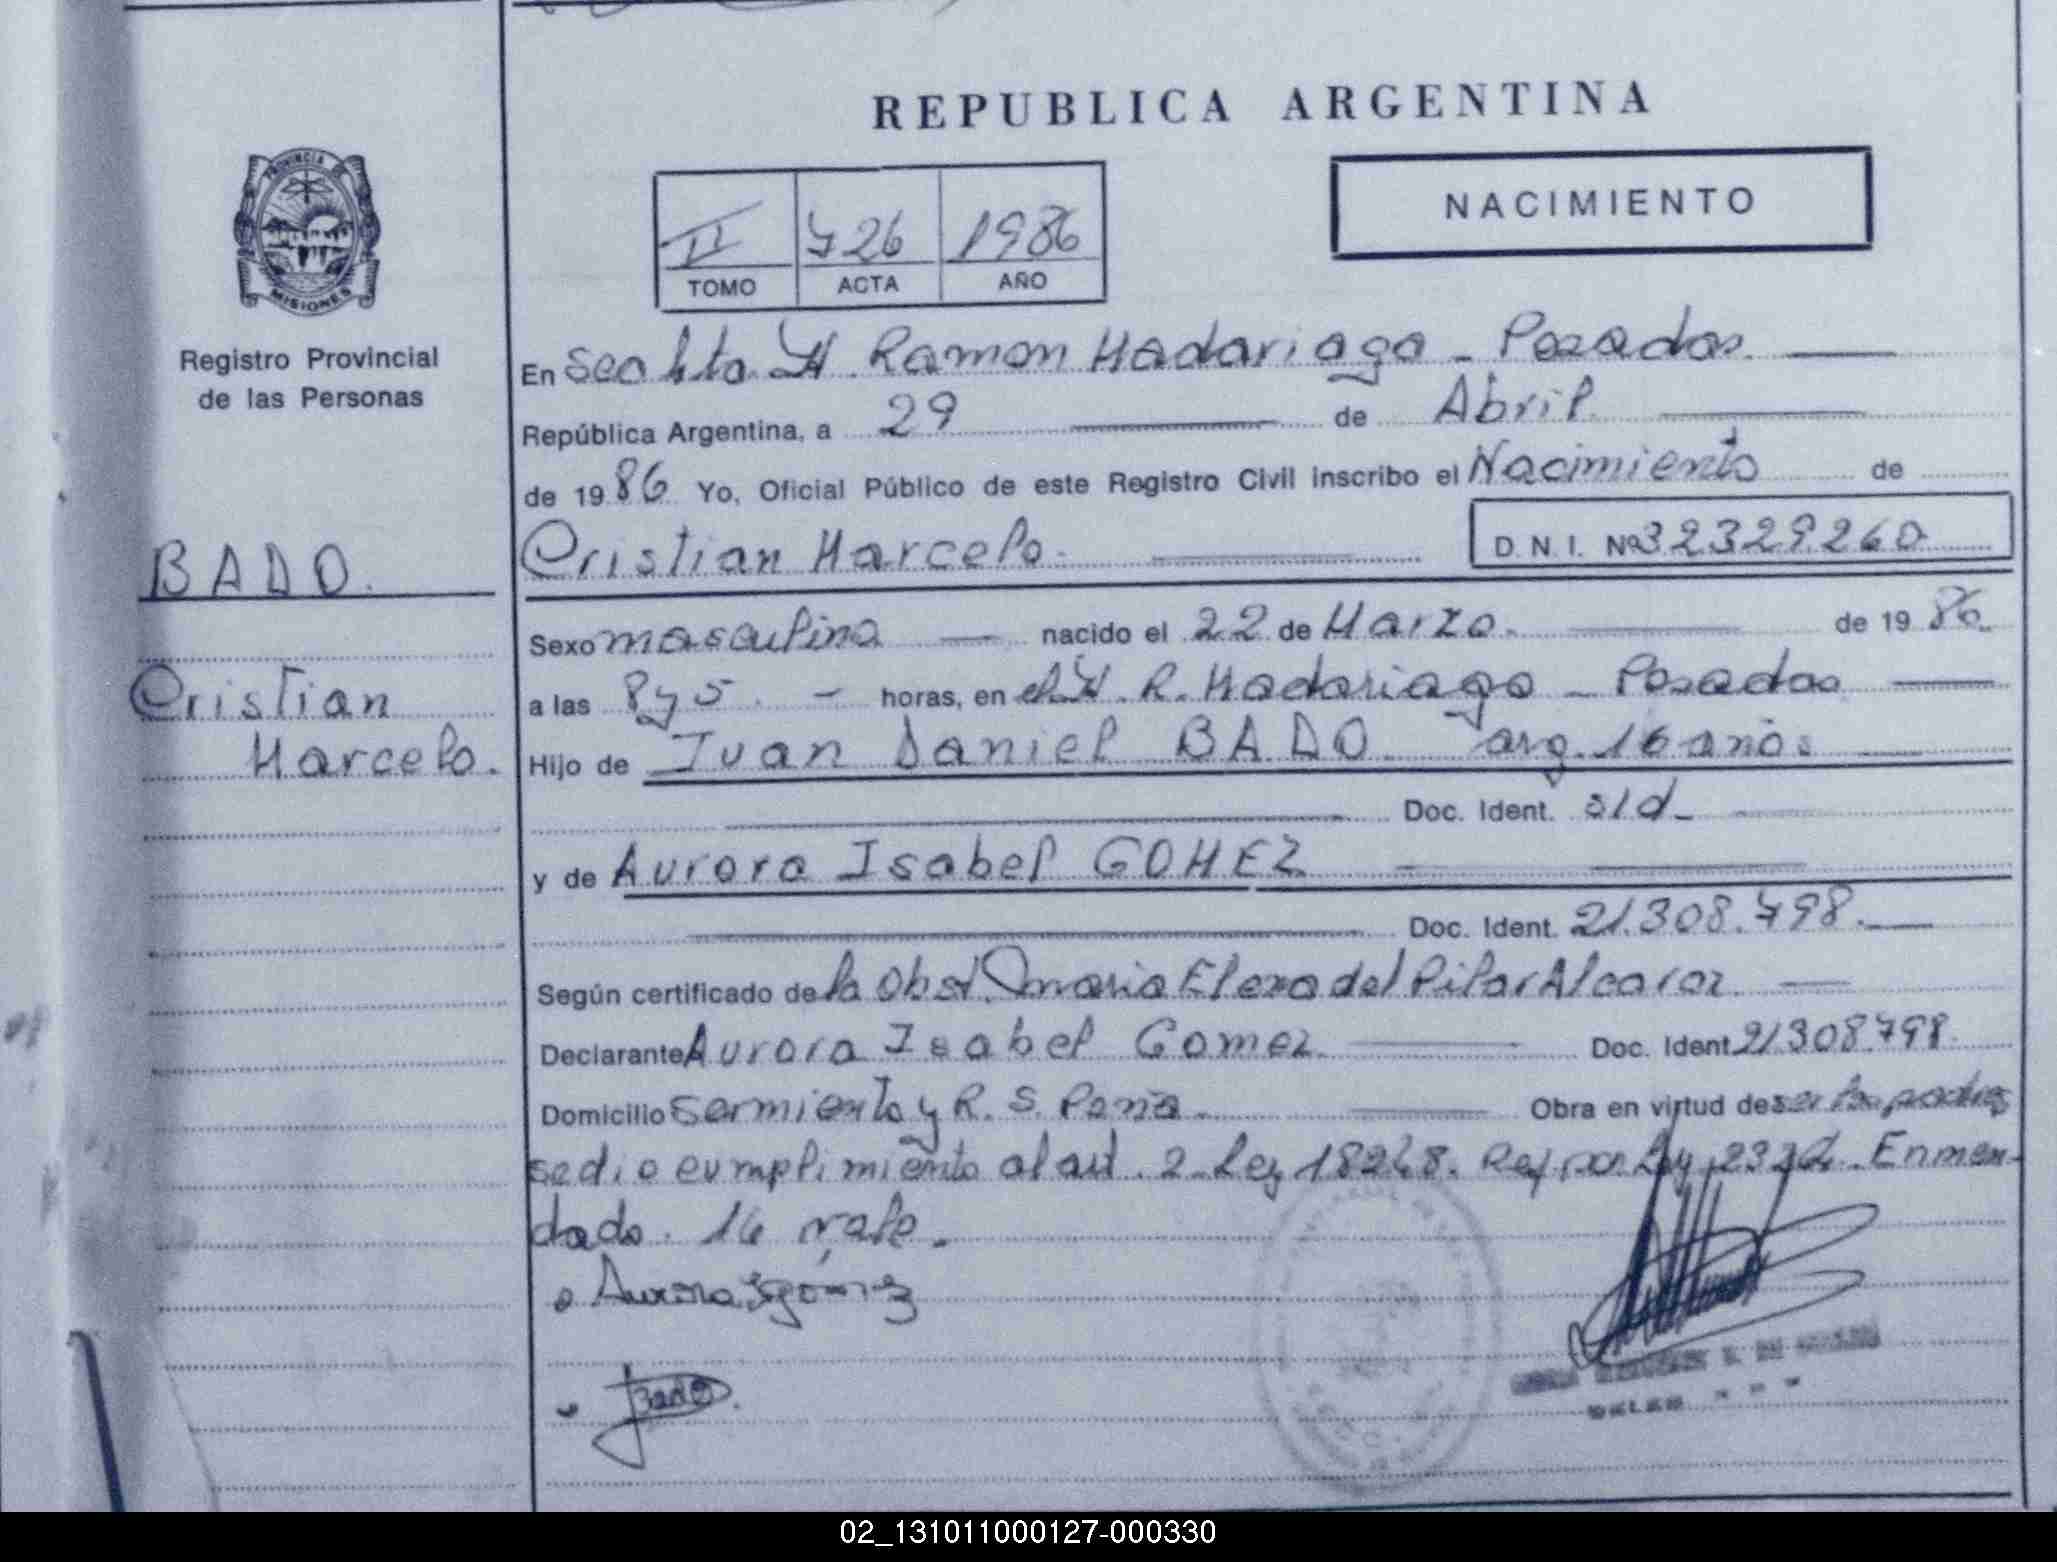 REPUBLICA ARGENTINA
PROVINCIA DE
MISIONES
Registro Provincial
de las Personas
NACIMIENTO
II 726 1986
TOMO ACTA AÑO
En Secc Hta. H. Ramon Madariaga - Posadas.
República Argentina, a 29 de Abril
de 1986 Yo, Oficial Público de este Registro Civil inscribo el Nacimiento de
BADO.
Cristian Marcelo.
D. N. I. Nº 32329260
Sexo masculino nacido el 22 de Marzo. de 1986.
Cristian
Marcelo.
a las 8 y 5 - horas, en el H. R. Madariaga - Posadas
Hijo de Juan Daniel BADO arg. 16 años
Doc. Ident. s/d -
y de Aurora Isabel GOMEZ
Doc. Ident. 21.308.798.
Según certificado de la Obst. Maria Elena del Pilar Alcaraz
Declarante Aurora Isabel Gomez Doc. Ident. 21308798.
Domicilio Sarmiento y R. S. Peña. Obra en virtud de ser los padres
se dio cumplimiento al art. 2 Ley 18248. Ref por Ley Enmen-
dado. 16 vale.
Aurora I gómez
Bado.
02_131011000127-000330